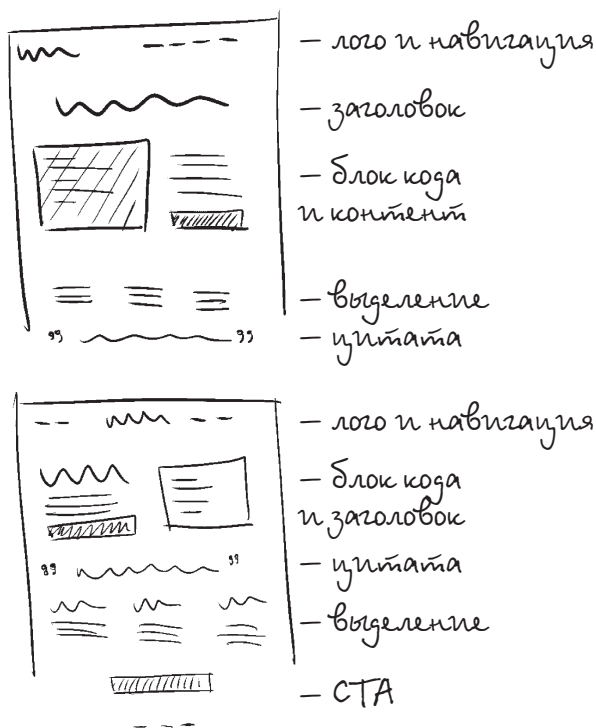 — лого и навигация
— заголовок
— блок кода
и контент
— выделение
— цитата
— лого и навигация
— блок кода
и заголовок
— цитата
— выделение
— CTA